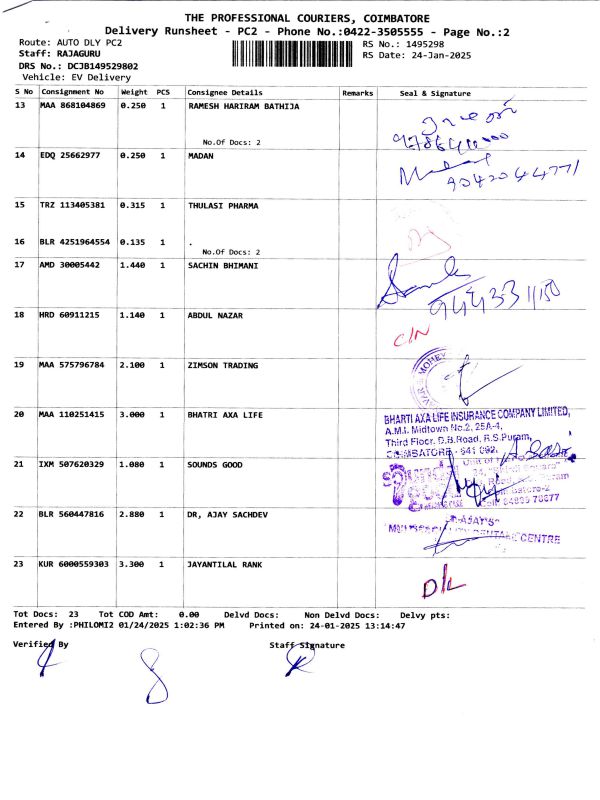 THE PROFESSIONAL COURIERS, COIMBATORE
Delivery Runsheet - PC2 - Phone No.:0422-3505555 - Page No.:2
Route: AUTO DLY PC2 RS No.: 1495298
Staff: RAJAGURU RS Date: 24-Jan-2025
DRS No.: DCJB149529802
Vehicle: EV Delivery
S No Consignment No Weight PCS Consignee Details Remarks Seal & Signature
13 MAA 868104869 0.250 1 RAMESH HARIRAM BATHIJA
No.Of Docs: 2
14 EDQ 25662977 0.250 1 MADAN
9042044771
15 TRZ 113405381 0.315 1 THULASI PHARMA
16 BLR 4251964554 0.135 1 .
No.Of Docs: 2
17 AMD 30005442 1.440 1 SACHIN BHIMANI
9443331150
18 HRD 60911215 1.140 1 ABDUL NAZAR
C/N
19 MAA 575796784 2.100 1 ZIMSON TRADING
MONEY
20 MAA 110251415 3.000 1 BHATRI AXA LIFE
BHARTI AXA LIFE INSURANCE COMPANY LIMITED,
A.M.I. Midtown No.2, 25A-4,
Third Floor, D.B.Road, R.S.Puram,
COIMBATORE - 641 002.
21 IXM 507620329 1.080 1 SOUNDS GOOD
22 BLR 560447816 2.880 1 DR, AJAY SACHDEV
CENTRE
23 KUR 6000559303 3.300 1 JAYANTILAL RANK
D/L
Tot Docs: 23 Tot COD Amt: 0.00 Delvd Docs: Non Delvd Docs: Delvy pts:
Entered By :PHILOMI2 01/24/2025 1:02:36 PM Printed on: 24-01-2025 13:14:47
Verified By Staff Signature